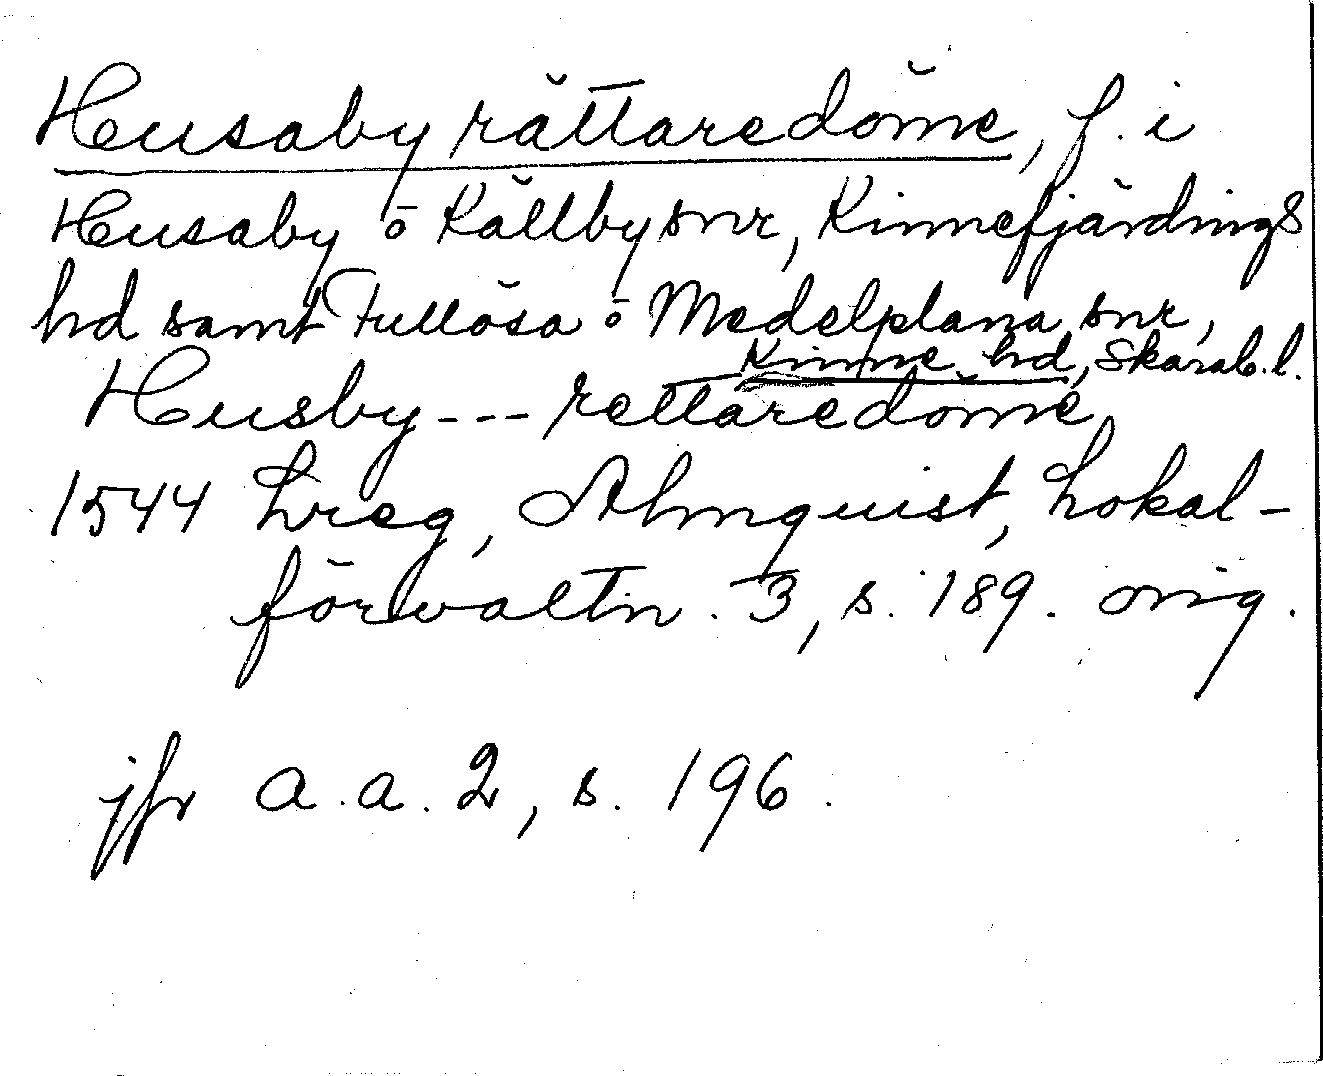 Husaby rättaredöme, f. i
Husaby o Källby snr, Kinnefjärdings
hd samt Fullösa o Medelplana snr,
Kinne hd, Skarab. l.
Husby --- rettaredöme
1544 Lreg, Almquist, Lokal-
förvaltn. 3, s. 189. orig.
jfr a.a. 2, s. 196.